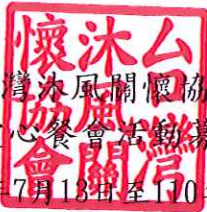 台灣沐風關懷協會
灣沐風關懷協
心餐會活動募
7月13日至110